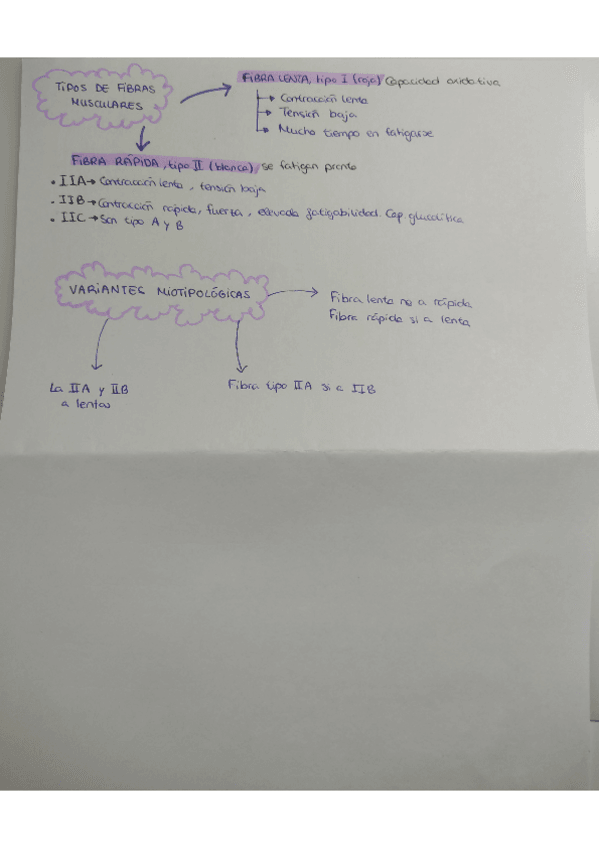 TIPOS DE FIBRAS
MUSCULARES
FIBRA LENTA, tipo I (roja) Capacidad oxidativa
Contracción lenta
Tensión baja
Mucho tiempo en fatigarse
FIBRA RÁPIDA, tipo II (blanca), se fatigan pronto
• IIA → Contracción lenta, tensión baja
• IIB → Contracción rápida, fuerte, elevada fatigabilidad. Cap glucolítica
• IIC → Son tipo A y B
VARIANTES MIOTIPOLÓGICAS
Fibra lenta no a rápida
Fibra rápida si a lenta
La IIA y IIB
a lentas
Fibra tipo IIA si a IIB